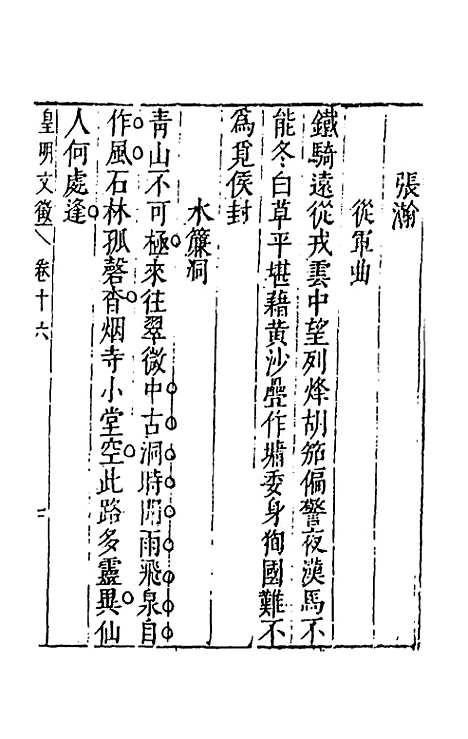 張瀚
從軍曲
鐵騎遠從戎雲中望列烽胡笳偏警夜漠馬不
能冬白草平堪藉黄沙疊作墉委身狥國難不
為覓侯封
水簾洞
青山不可極來往翠微中古洞時聞雨飛泉自
作風石林孤磬杳烟寺小堂空此路多靈異仙
人何處逢
皇明文徵 卷十六